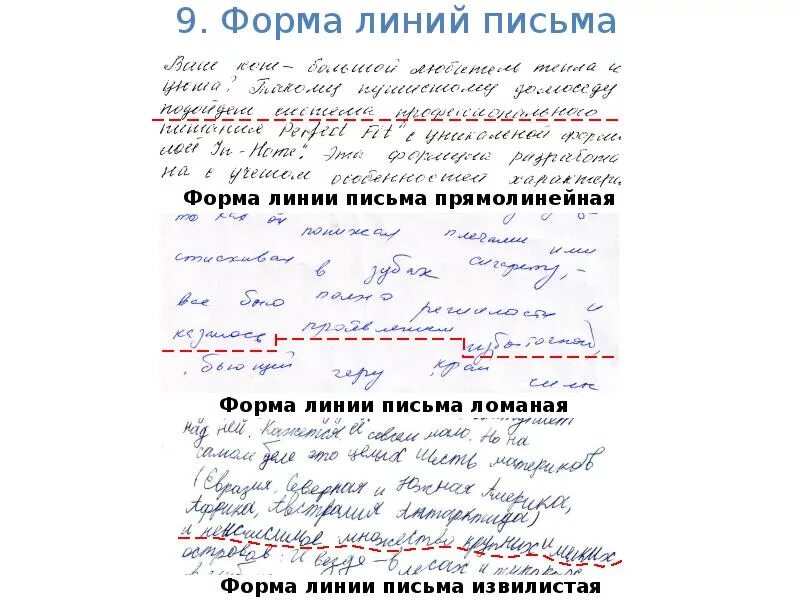 9. Форма линий письма
Ваш кот - большой любитель тепла и
уюта? Такому пушистому домоседу
подойдет система профессионального
питания Perfect Fit" с уникальной форму
лой In-Home". Эта формула разработа
на с учетом особенностей характери
Форма линии письма прямолинейная
то как он пожимал плечами или
стискивал в зубах сигарету, -
все было полно регильности и
казалось проявлением избыточной,
бьющий через край силы
Форма линии письма ломаная
над ней. Кажется её совсем мало. Но на
самом деле это целых шесть материков
(Евразия, Северная и Южная Америка,
Африка, Австралия Антарктида)
и неисчислимое множество крупных и мелких
островов. И везде - в лесах и
Форма линии письма извилистая